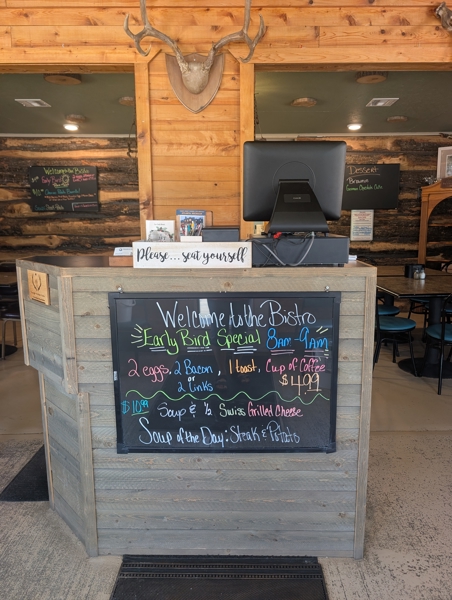 Welcome to the Bistro
Early Bird
Dessert
Brownie
German Chocolate Cake
Please...seat yourself
Welcome to the Bistro
Early Bird Special 8am-9am
2 eggs, 2 Bacon, 1 toast, Cup of Coffee
or
2 Links
$4.99
$10.99 Soup & 1/2 Swiss Grilled Cheese
Soup of the Day: Steak & Potato